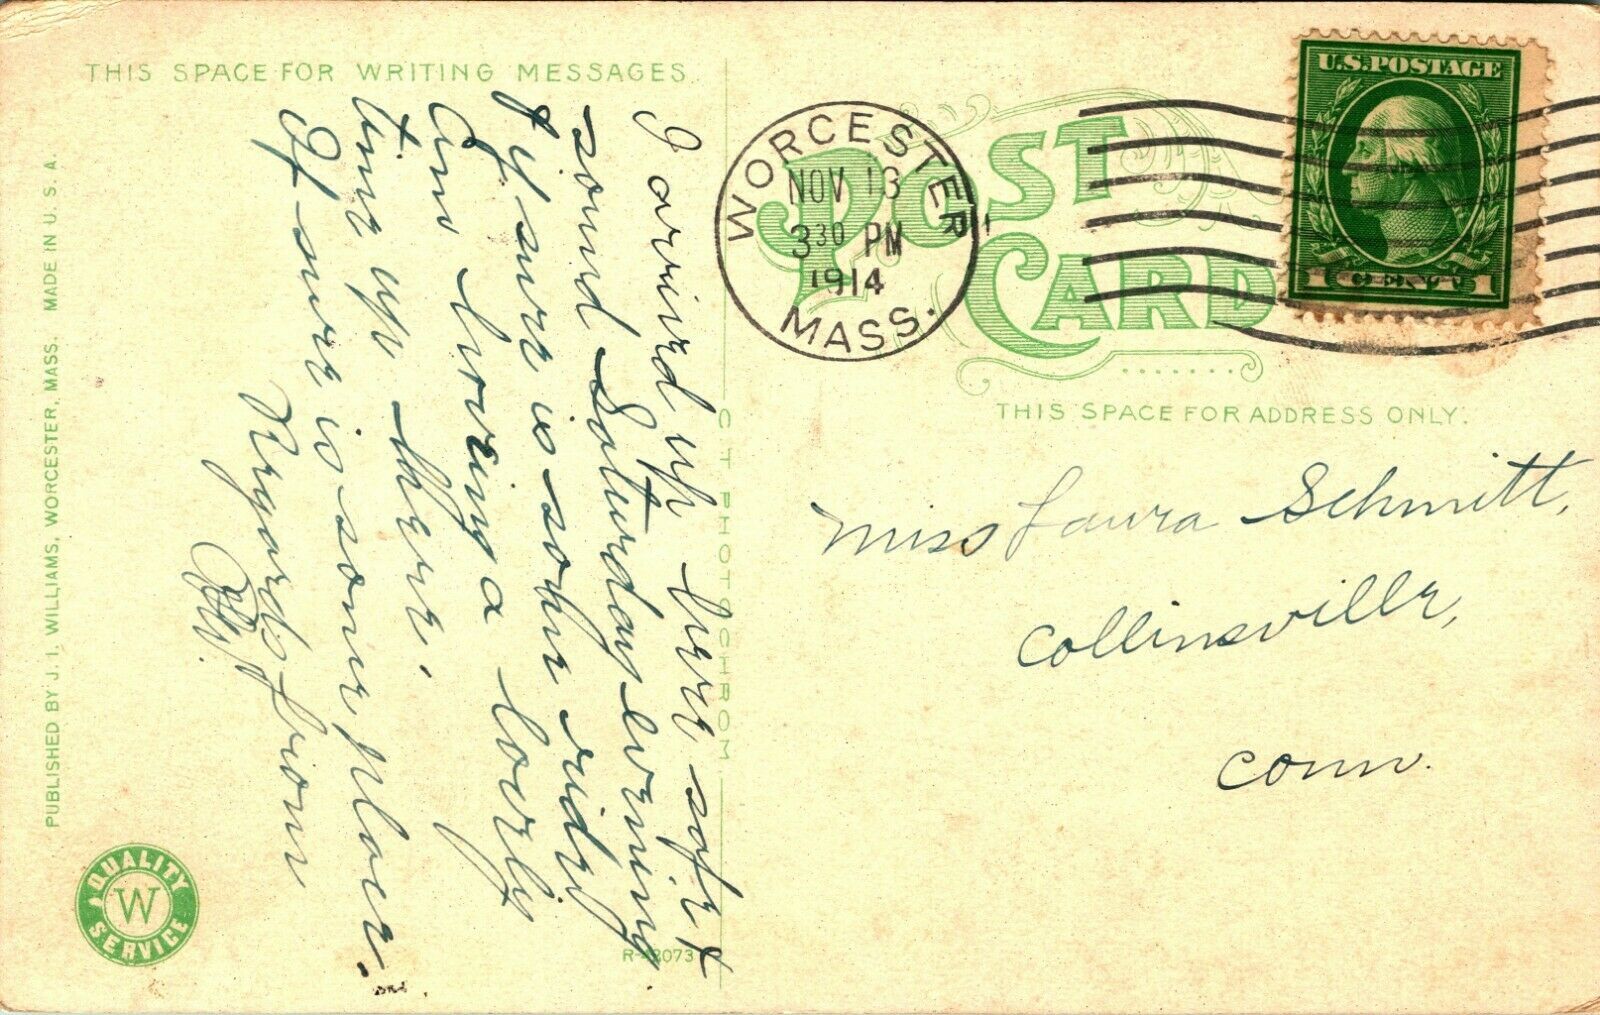 THIS SPACE FOR WRITING MESSAGES
I arrived up here safe &
sound Saturday evening
It sure is some ride,
Am having a lovely
time up here.
It sure is some place.
Regards from
PUBLISHED BY J. I. WILLIAMS, WORCESTER, MASS. MADE IN U. S. A.
A QUALITY SERVICE
W
C T PHOTOCHROM
R-42073
WORCESTER
NOV 13
3 30 PM
1914
MASS.
POST CARD
U.S. POSTAGE
1 CENT 1
THIS SPACE FOR ADDRESS ONLY.
Miss Laura Schmitt,
Collinsville,
Conn.